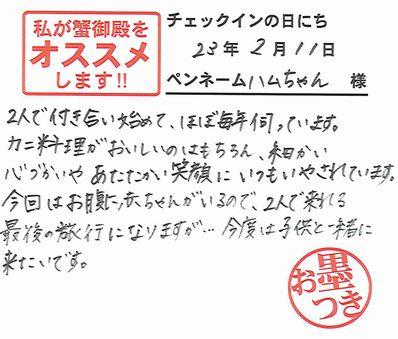 私が蟹御殿を
オススメ
します!!
チェックインの日にち
23年2月11日
ペンネーム ハムちゃん 様
2人で付き合い始めて、ほぼ毎年伺っています。
カニ料理がおいしいのはもちろん、細かい
心づかいや あたたかい笑顔に いつもいやされています。
今回はお腹に赤ちゃんがいるので、2人で来れる
最後の旅行になりますが… 今度は子供と一緒に
来たいです。
お墨つき